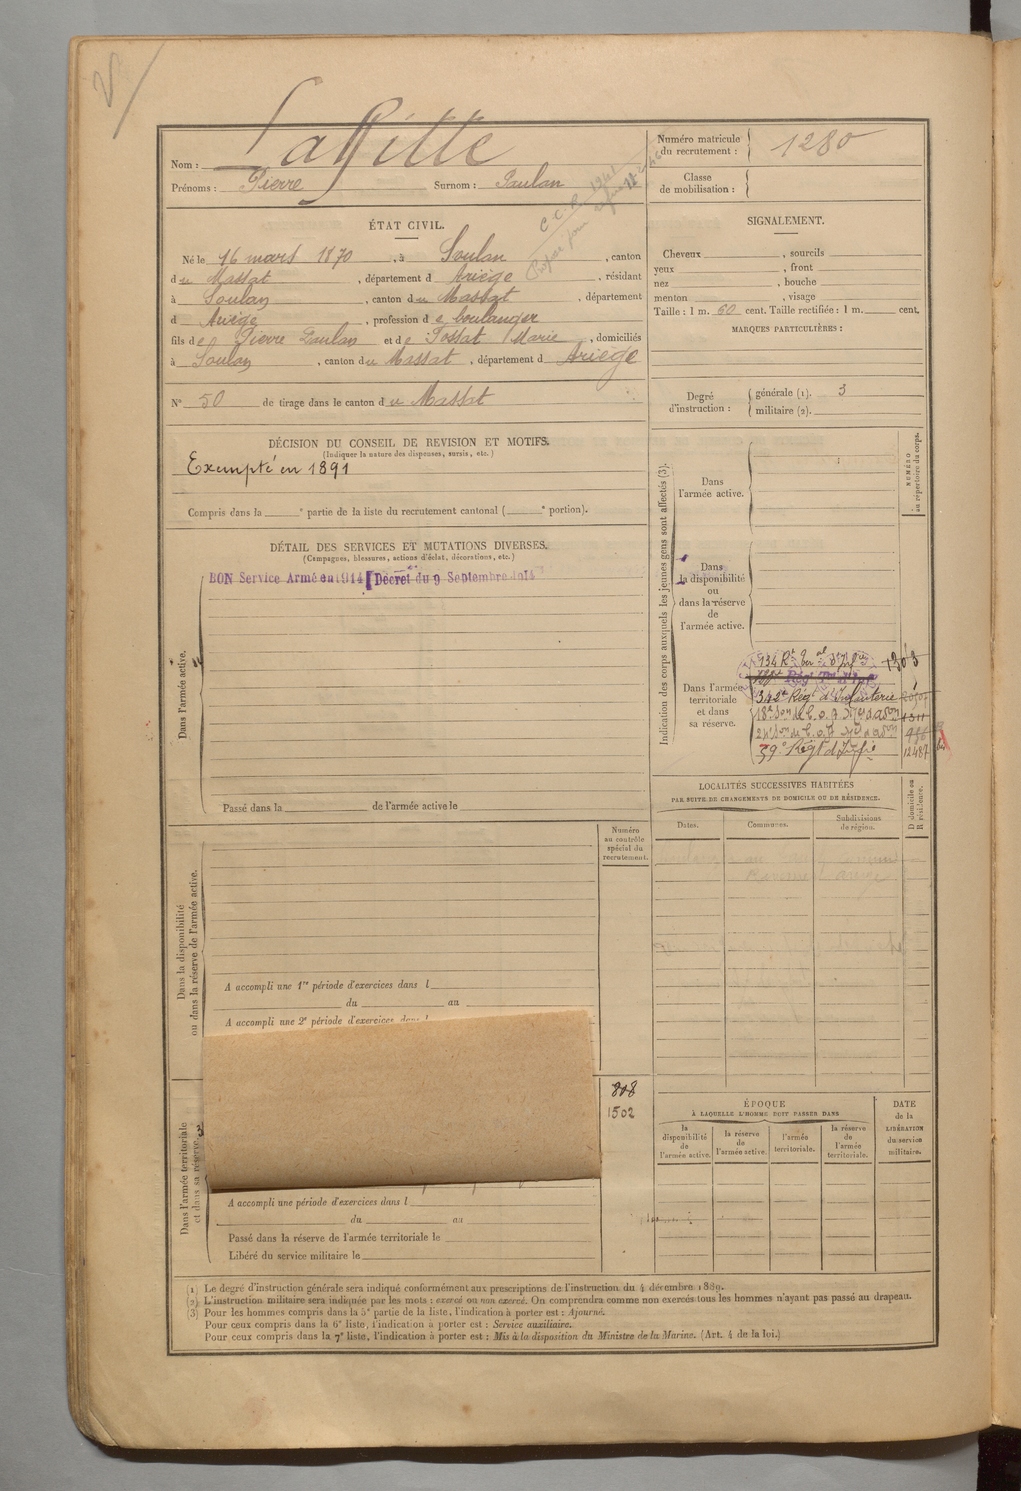 Nom : Laffitte
Numéro matricule du recrutement : 1280
Prénoms : Pierre Surnom : Paulan
Classe de mobilisation :
C.C.P. 1941
ÉTAT CIVIL.
Né le 16 mars 1870, à Soulan, canton
du Massat, département d Ariège, résidant
à Soulan, canton du Massat, département
d Ariège, profession de boulanger
fils de Pierre Paulan et de Tossat Marie, domiciliés
à Soulan, canton du Massat, département d Ariège
N° 50 de tirage dans le canton du Massat
SIGNALEMENT.
Cheveux , sourcils
yeux , front
nez , bouche
menton , visage
Taille : 1 m. 60 cent. Taille rectifiée : 1 m. cent.
MARQUES PARTICULIÈRES :
Degré d'instruction : générale (1). 3
militaire (2).
DÉCISION DU CONSEIL DE REVISION ET MOTIFS.
(Indiquer la nature des dispenses, sursis, etc.)
Exempté en 1891
Compris dans la e partie de la liste du recrutement cantonal ( e portion).
DÉTAIL DES SERVICES ET MUTATIONS DIVERSES.
(Campagnes, blessures, actions d'éclat, décorations, etc.)
BON Service Armé en 1914 Décret du 9 Septembre 1914
Dans l'armée active.
Passé dans la de l'armée active le
Indication des corps auxquels les jeunes gens sont affectés (3).
NUMÉRO au répertoire du corps.
Dans l'armée active.
Dans la disponibilité ou dans la réserve de l'armée active.
Dans l'armée territoriale et dans sa réserve.
134 Rt Ter al d'Infrie 1303
342e Régt d'Infanterie
18e Son de C.O.A. 1311
59e Régt d'Infie 12487 bis
LOCALITÉS SUCCESSIVES HABITÉES
PAR SUITE DE CHANGEMENTS DE DOMICILE OU DE RÉSIDENCE.
Dates. Communes. Subdivisions de région. D domicile ou R résidence.
Numéro au contrôle spécial du recrutement.
Dans la disponibilité ou dans la réserve de l'armée active.
A accompli une 1re période d'exercices dans l
du au
A accompli une 2e période d'exercices dans l
808
1502
Dans l'armée territoriale et dans sa réserve.
A accompli une période d'exercices dans l
du au
Passé dans la réserve de l'armée territoriale le
Libéré du service militaire le
ÉPOQUE
À LAQUELLE L'HOMME DOIT PASSER DANS
la disponibilité de l'armée active. la réserve de l'armée active. l'armée territoriale. la réserve de l'armée territoriale.
DATE de la LIBÉRATION du service militaire.
(1) Le degré d'instruction générale sera indiqué conformément aux prescriptions de l'instruction du 4 décembre 1889.
(2) L'instruction militaire sera indiquée par les mots : exercé ou non exercé. On comprendra comme non exercés tous les hommes n'ayant pas passé au drapeau.
(3) Pour les hommes compris dans la 5e partie de la liste, l'indication à porter est : Ajourné.
Pour ceux compris dans la 6e liste, l'indication à porter est : Service auxiliaire.
Pour ceux compris dans la 7e liste, l'indication à porter est : Mis à la disposition du Ministre de la Marine. (Art. 4 de la loi.)